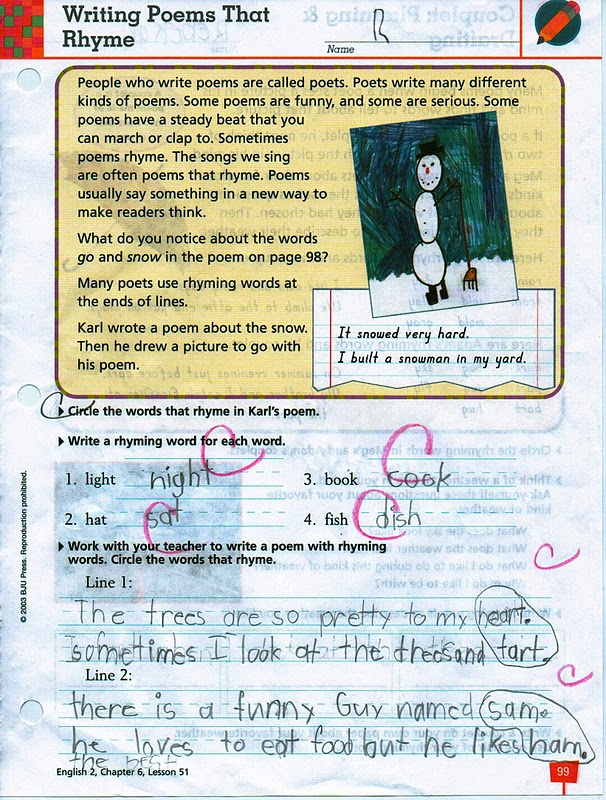 Writing Poems That
Rhyme
Name R
People who write poems are called poets. Poets write many different
kinds of poems. Some poems are funny, and some are serious. Some
poems have a steady beat that you
can march or clap to. Sometimes
poems rhyme. The songs we sing
are often poems that rhyme. Poems
usually say something in a new way to
make readers think.
What do you notice about the words
go and snow in the poem on page 98?
Many poets use rhyming words at
the ends of lines.
Karl wrote a poem about the snow.
Then he drew a picture to go with
his poem.
It snowed very hard.
I built a snowman in my yard.
C
Circle the words that rhyme in Karl's poem.
Write a rhyming word for each word.
1. light night C
2. hat sat C
3. book cook C
4. fish dish C
Work with your teacher to write a poem with rhyming
words. Circle the words that rhyme.
C
Line 1:
The trees are so pretty to my heart.
sometimes I look at the trees and fart.
Line 2:
C
there is a funny Guy named sam.
he loves to eat food but he likes ham.
the best
© 2003 BJU Press. Reproduction prohibited.
English 2, Chapter 6, Lesson 51
99